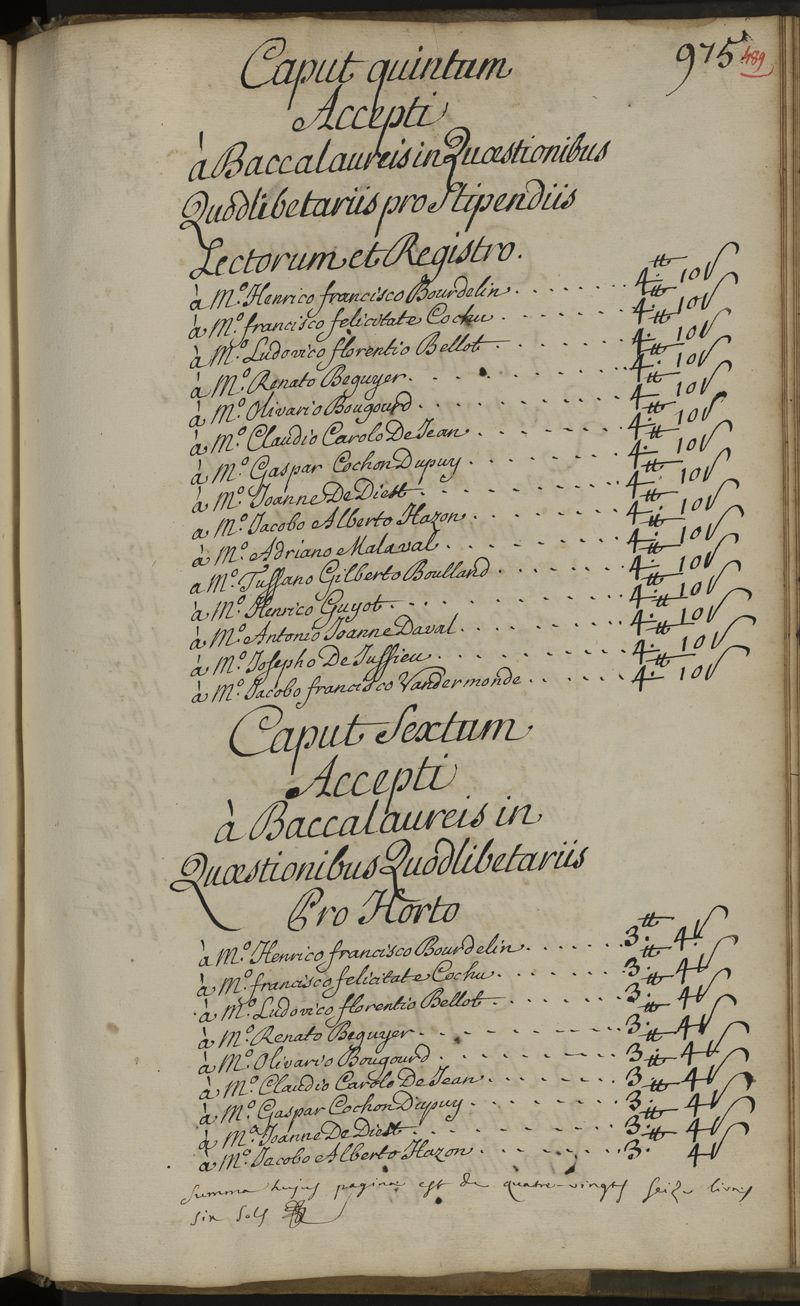 975
489
Caput quintum
Accepti
à Baccalaureis in Quæstionibus
Quodlibetariis pro Stipendiis
Lectorum et Registro.
à M.º Henrico francisco Bourdelin . . . . . . . 4.tt 10s
à M.º francisco felicitate Cochu . . . . . . . 4.tt 10s
à M.º Ludovico florentio Bellot . . . . . . . 4.tt 10s
à M.º Renato Beguyer . . . . . . . 4.tt 10s
à M.º Olivario Bougourd . . . . . . . 4tt 10s
à M.º Claudio Carolo De Jean . . . . . . . 4.tt 10s
à M.º Gaspar Cochon Dupuy . . . . . . . 4.tt 10s
à M.º Joanne De Diest . . . . . . . 4tt 10s
a M.º Jacobo Alberto Hazon . . . . . . . 4.tt 10s
à M.º Adriano Malaval . . . . . . . 4.tt 10s
a M.º Tussano Gilberto Boulland . . . . . . . 4.tt 10s
à M.º Henrico Guyot . . . . . . . 4.tt 10s
à M.º Antonio Joanne Daval . . . . . . . 4.tt 10s
à M.º Josepho De Jussieu . . . . . . . 4.tt 10s
à M.º Jacobo francisco Vandermonde . . . . . . . 4.tt 10s
Caput Sextum
Accepti
à Baccalaureis in
Quæstionibus Quodlibetariis
Pro Horto
à M.º Henrico francisco Bourdelin . . . . . . . 3.tt 4s
à M.º francisco felicitate Cochu . . . . . . . 3.tt 4s
à M.º Ludovico florentio Bellot . . . . . . . 3.tt 4s
à M.º Renato Beguyer . . . . . . . 3.tt 4s
à M.º Olivario Bougourd . . . . . . . 3tt 4s
à M.º Claudio Carolo De Jean . . . . . . . 3tt 4s
à M.º Gaspar Cochon Dupuy . . . . . . . 3.tt 4s
à M.º Joanne De Diest . . . . . . . 3.tt 4s
a M.º Jacobo Alberto Hazon . . . . . . . 3.tt 4s
Summa hujus paginæ est de quatre-vingts seize livres
six sols